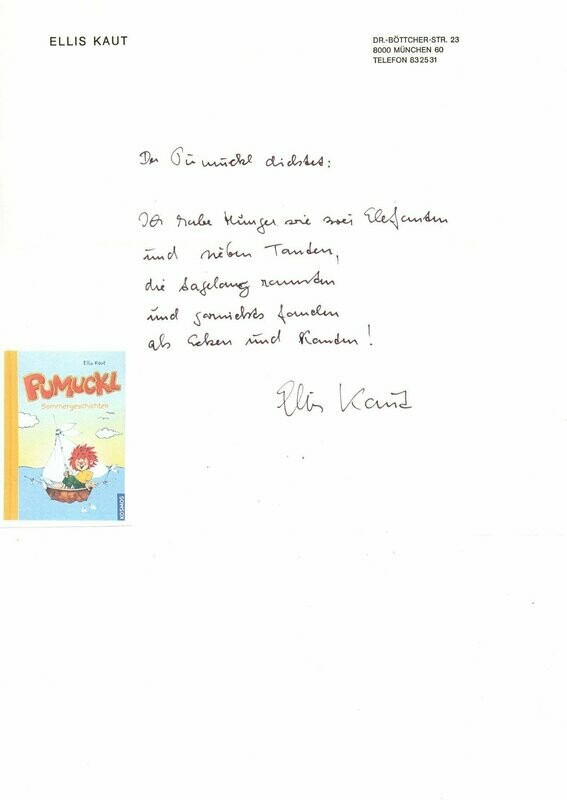 ELLIS KAUT
DR.-BÖTTCHER-STR. 23
8000 MÜNCHEN 60
TELEFON 832531
Der Pumuckl dichtet:
Ich habe Hunger wie zwei Elefanten
und sieben Tanten,
die tagelang rannten
und garnichts fanden
als Ecken und Kanten!
Ellis Kaut
Ellis Kaut
PUMUCKL
Sommergeschichten
KOSMOS